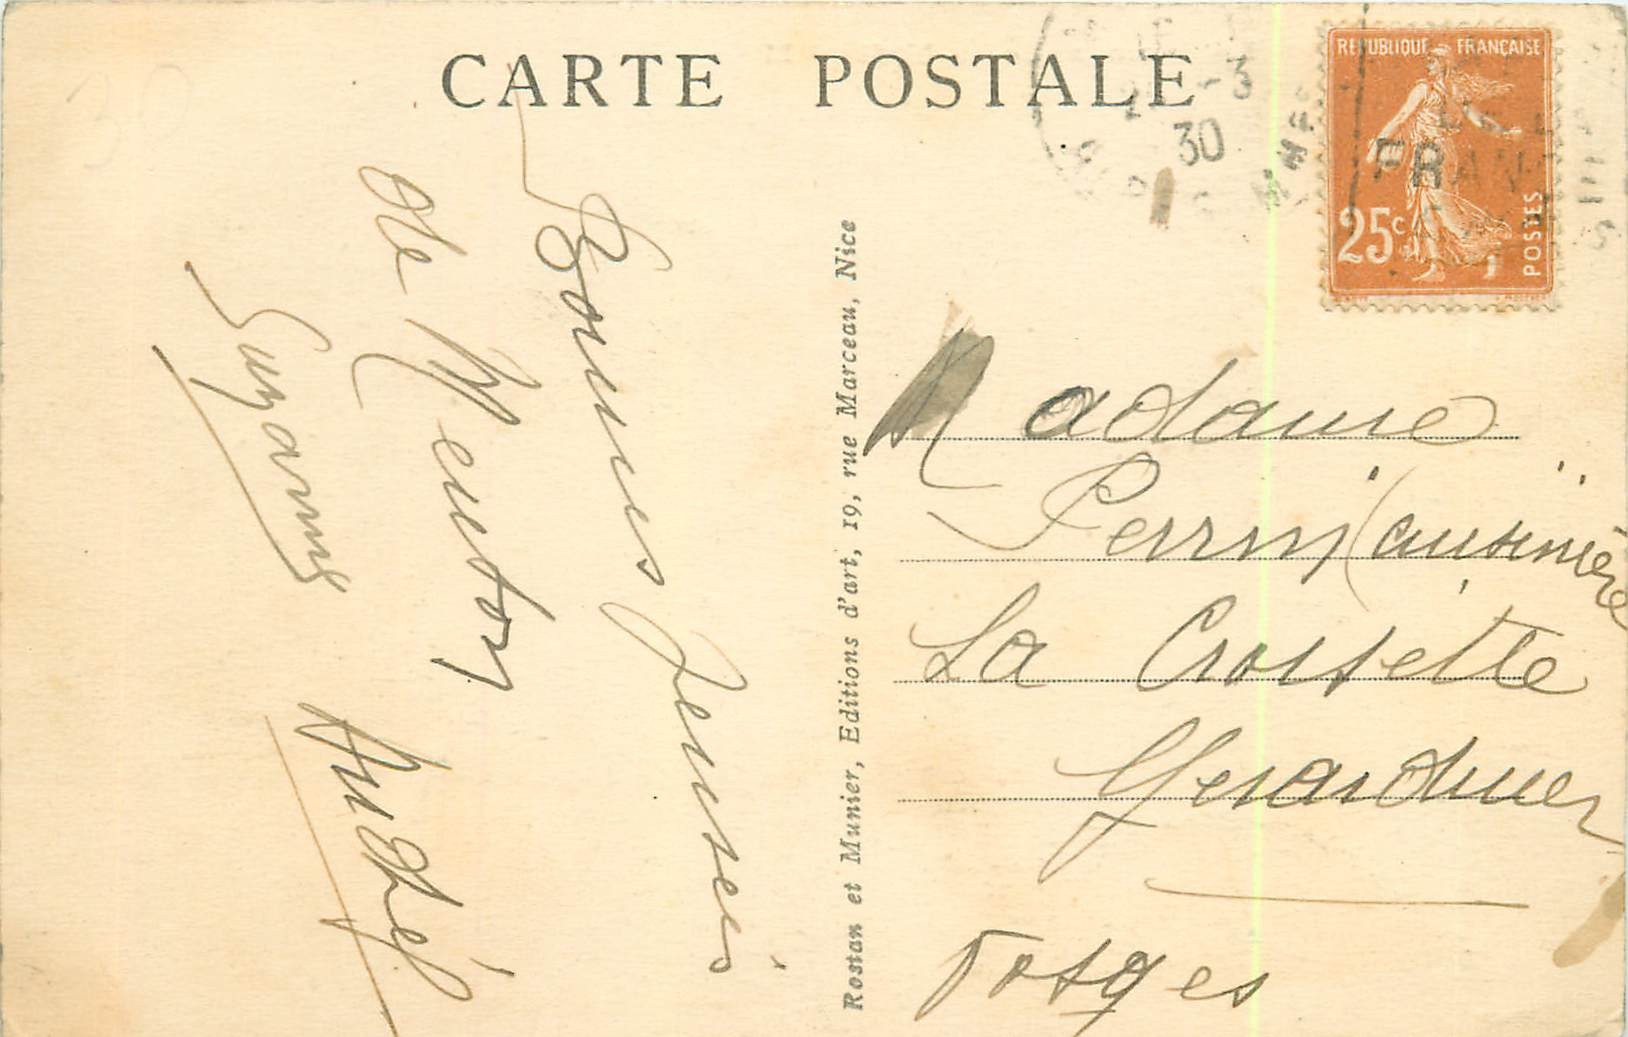 CARTE POSTALE
-3
30
REPUBLIQUE FRANÇAISE
25c
POSTES
FRAN
Bonnes Pensées
de Menton
Suzanne
Rostan et Munier, Editions d'art, 19, rue Marceau, Nice
Madame
Perrin (cuisinière
La Croisette
Gerardmer
Vosges